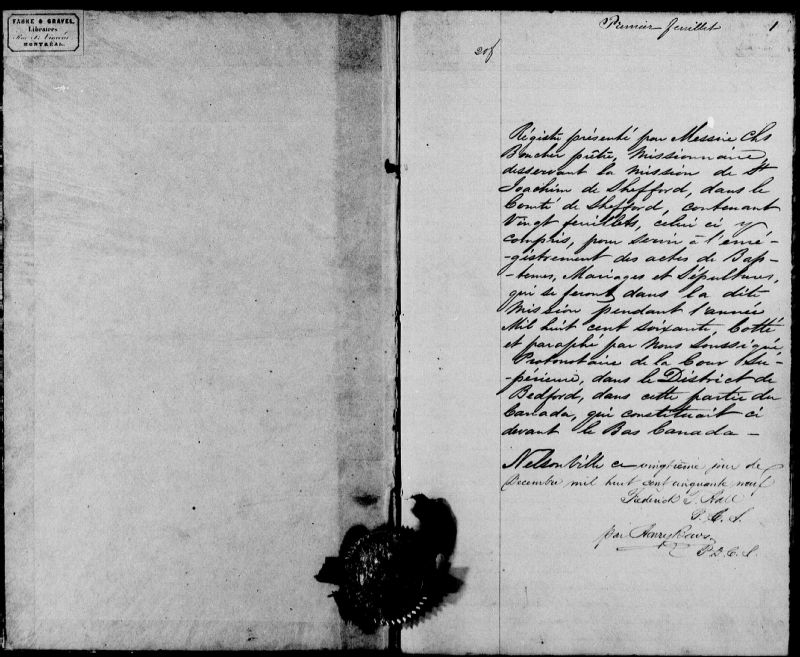 FABRE & GRAVEL,
Libraires
Rue St. Vincent
MONTRÉAL.
Premier feuillet 1
20f
Régistre présenté par Messire Chs
Boucher prêtre, Missionnaire,
desservant la mission de St
Joachim de Shefford, dans le
Comté de Shefford, contenant
Vingt feuillets, celui ci y
compris, pour servir à l'enré-
-gistrement des actes de Bap-
-temes, Mariages et Sépultures,
qui se feront dans la dite
Mission pendant l'année
Mil huit cent soixante Cotté
et paraphé par Nous Soussigné
Protonotaire de la Cour Su-
-périeure, dans le District de
Bedford, dans cette partie du
Canada, qui constituait ci
devant le Bas Canada -
Nelsonville ce vingtième jour de
Decembre mil huit cent cinquante neuf
Frederick
P. C. S.
par Henry
P. D. C. S.